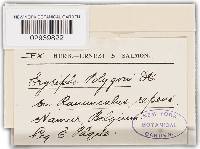 NEW YORK BOTANICAL GARDEN
02959822
HERB.—ERNEST S. SALMON.
Erysiphe Polygoni DC
on Ranunculus repens.
Namur Belgium
NEW YORK
BOTANICAL
GARDEN